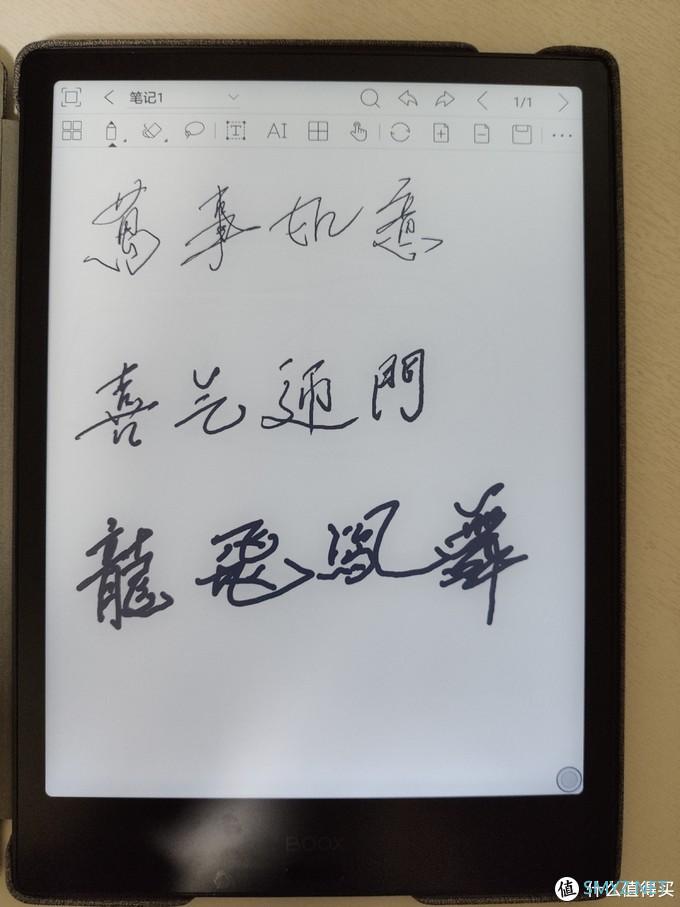 笔记1 1/1
T AI
萬事如意
喜气迎門
龍飛鳳舞
BOOX
值 什么值得买